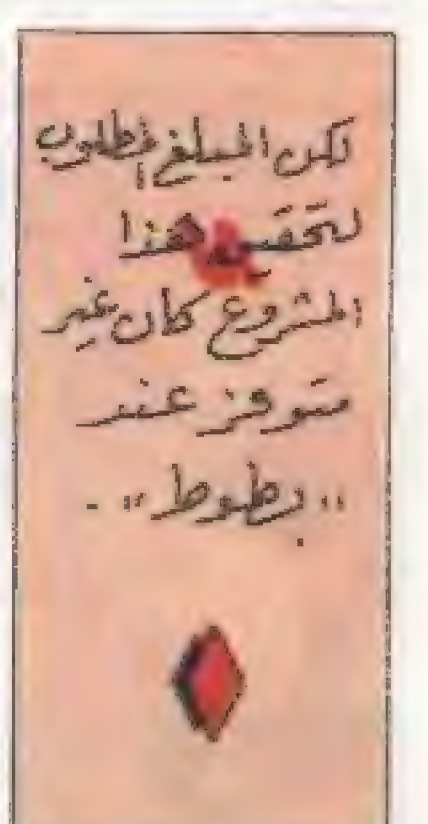 لكن المبلغ المطلوب
لتحقيق هذا
المشروع كان غير
متوفر عند
"بطوط".